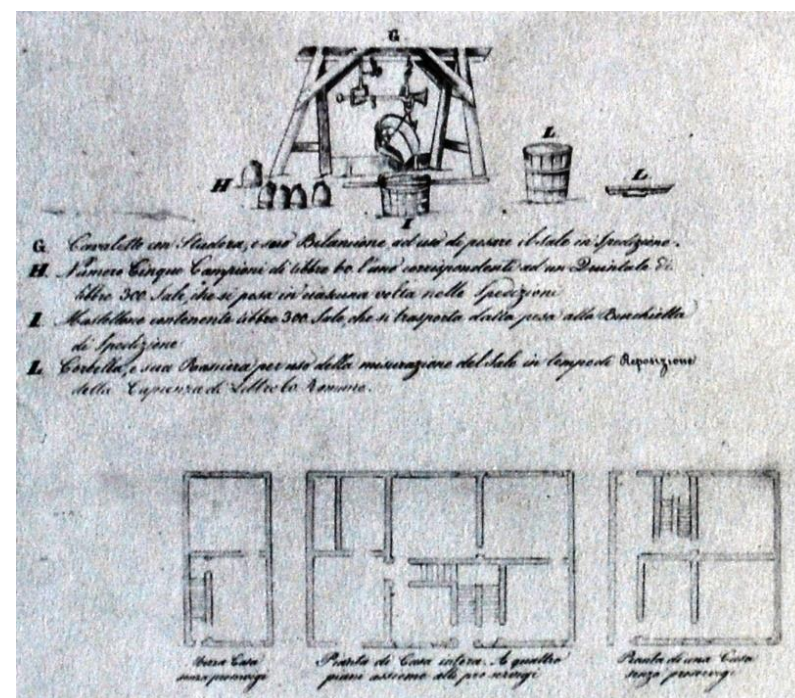 G
L
L
H
I
G Cavaletto con Stadera, e suo Bilancione ad uso di pesare il Sale in Spedizione.
H Numero Cinque Campioni di libbre 60 l'uno corrispondenti ad un Quintale di
libbre 300 Sale, che si pesa in ciascuna volta nelle Spedizioni
I Mastellone contenente libbre 300 Sale, che si trasporta dalla pesa alla
di Spedizione
L Corbella, e sua Rasiera per uso della misurazione del Sale in tempo di Reposizione
della Capienza di Libbre 60 Romane.
Casa
Pianta di Casa intera. A quattro
piani assieme alli
Pianta di una Casa
senza